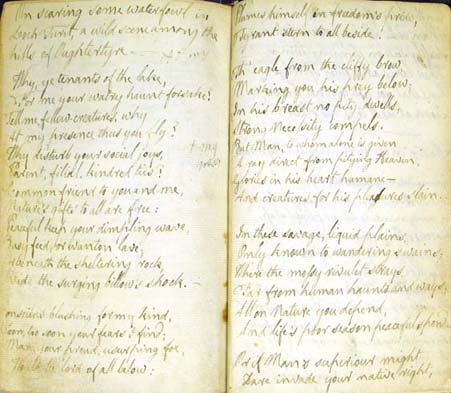 On scaring some waterfowl in
Loch Turit a wild scene among the
hills of Oughtertyre
Why, ye tenants of the lake,
For me your watry haunt forsake?
Tell me fellow creatures, why
At my presence thus you fly?
Why disturb your social joys,
Parent, filial, kindred ties?
Common friend to you and me,
Nature's gifts to all are free:
Peaceful keep your dimpling wave,
Busy feed, or wanton lave;
Beneath the sheltering rock,
Bide the surging billow's shock. —
Conscious blushing for my kind,
Soon, too soon your fears I find;
Man, your proud, usurping foe,
Would be lord of all below:
Plumes himself in freedom's pride,
Tyrant stern to all beside!
Th' eagle from the cliffy brow,
Marking you his prey below,
In his breast no pity dwells,
Strong Necessity compels.
But Man, to whom alone is given
A ray direct from pitying Heaven,
Glories in his heart humane —
And creatures for his pleasures slain. —
In these savage, liquid plains,
Only known to wandering swains,
Where the mossy rivulet strays
Far from human haunts and ways;
All on Nature you depend,
And life's poor season peaceful spend.
Or if Man's superiour might
Dare invade your native right,